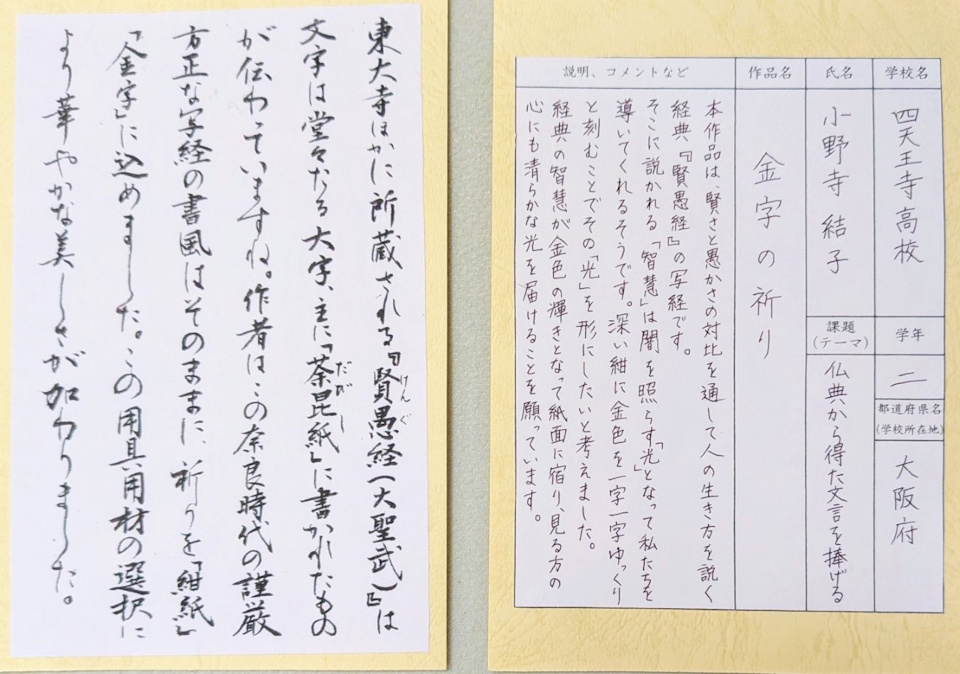 東大寺ほかに所蔵される『賢愚経（大聖武）』は
けんぐ
文字は堂々たる大字、主に「荼毘紙」に書かれたもの
だびし
が伝わっていますね。作者はこの奈良時代の謹厳
方正な写経の書風はそのままに、祈りを「紺紙」
「金字」に込めました。この用具用材の選択に
より華やかな美しさが加わりました。
学校名
四天王寺高校
学年
二
都道府県名
(学校所在地)
大阪府
氏名
小野寺 結子
課題
(テーマ)
仏典から得た文言を捧げる
作品名
金字の祈り
説明、コメントなど
本作品は、賢さと愚かさの対比を通して人の生き方を説く
経典『賢愚経』の写経です。
そこに説かれる「智慧」は闇を照らす「光」となって私たちを
導いてくれるそうです。深い紺に金色を一字一字ゆっくり
と刻むことでその「光」を形にしたいと考えました。
経典の智慧が金色の輝きとなって紙面に宿り、見る方の
心にも清らかな光を届けることを願っています。